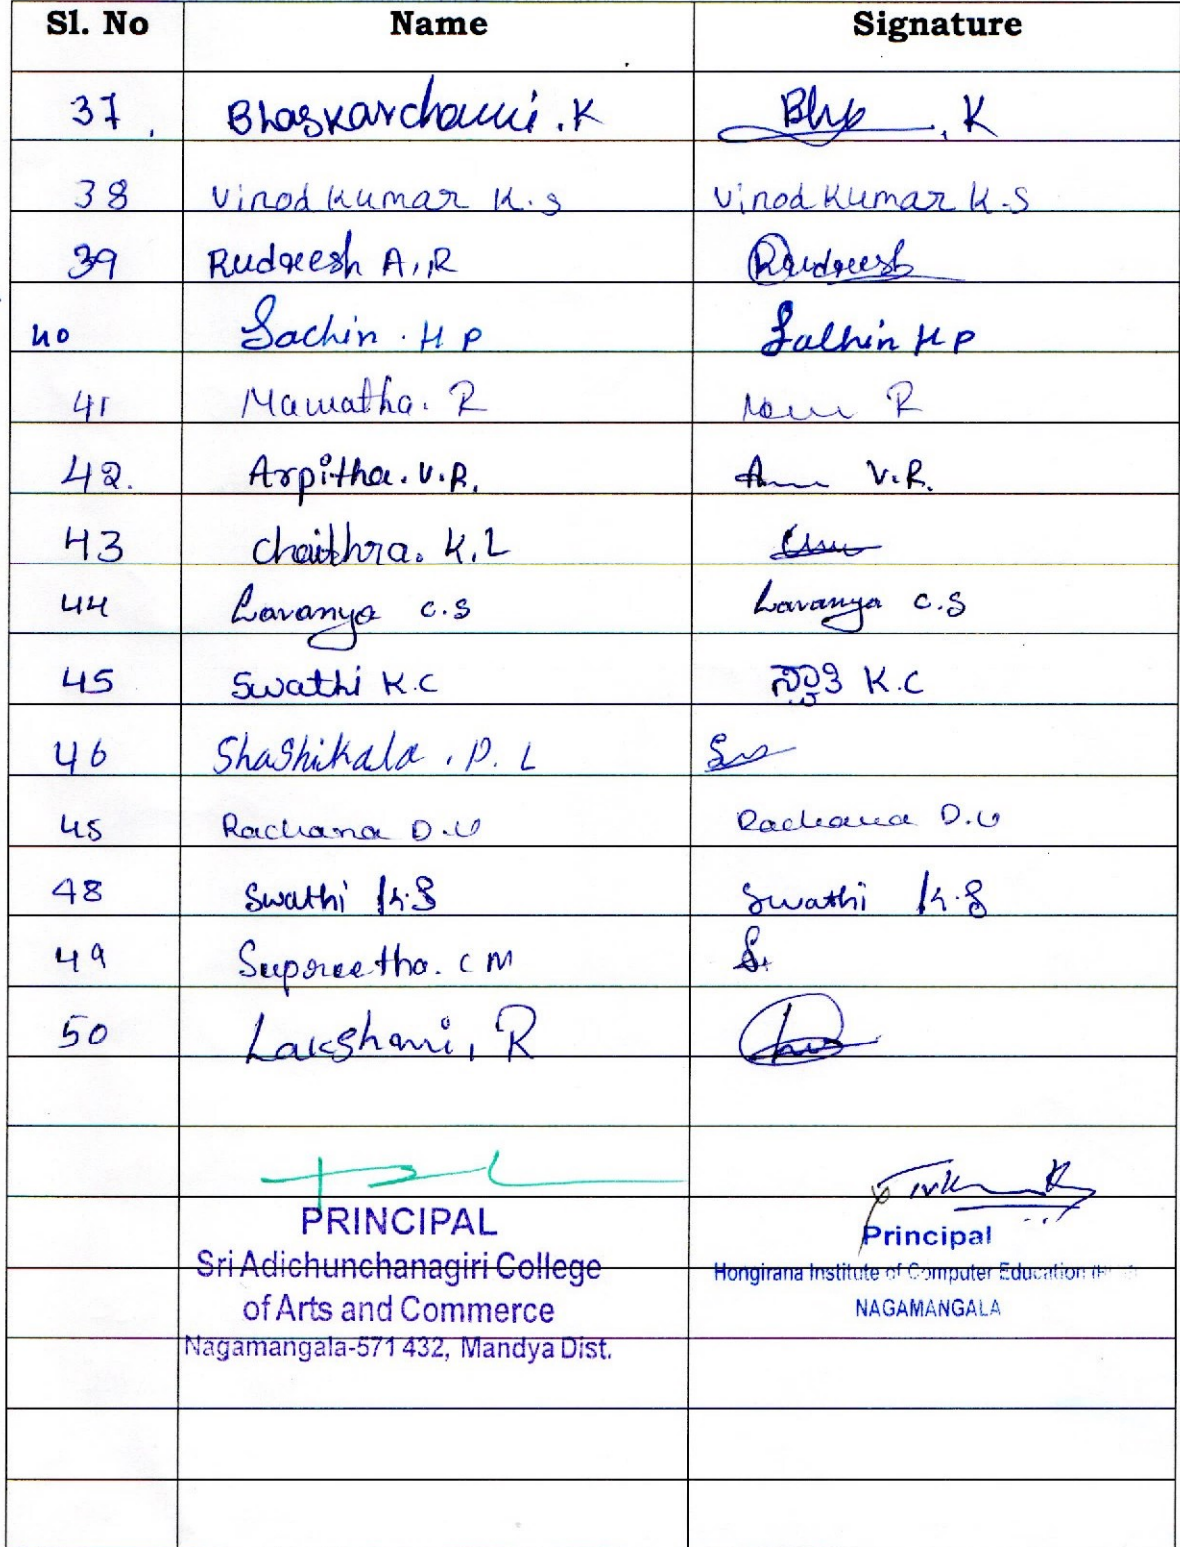 Sl. No Name Signature
37. Bhaskarchami. K K
38 Vinod Kumar K.S Vinod Kumar K.S
39 Rudreesh A.R Rudreesh
40 Sachin. H P Sachin H P
41 Mamatha. R R
42. Arpitha. V.R. V.R.
43 Chaithra. K.L
44 Lavanya C.S Lavanya C.S
45 Swathi K.C ಸ್ವಾತಿ K.C
46 Shashikala. P. L
45 Rachana D.U Rachana D.U
48 Swathi K.S Swathi K.S
49 Supreetha. C M S.
50 Lakshmi, R
PRINCIPAL
Sri Adichunchanagiri College
of Arts and Commerce
Nagamangala-571 432, Mandya Dist.
Principal
Hongirana Institute of Computer Education
NAGAMANGALA